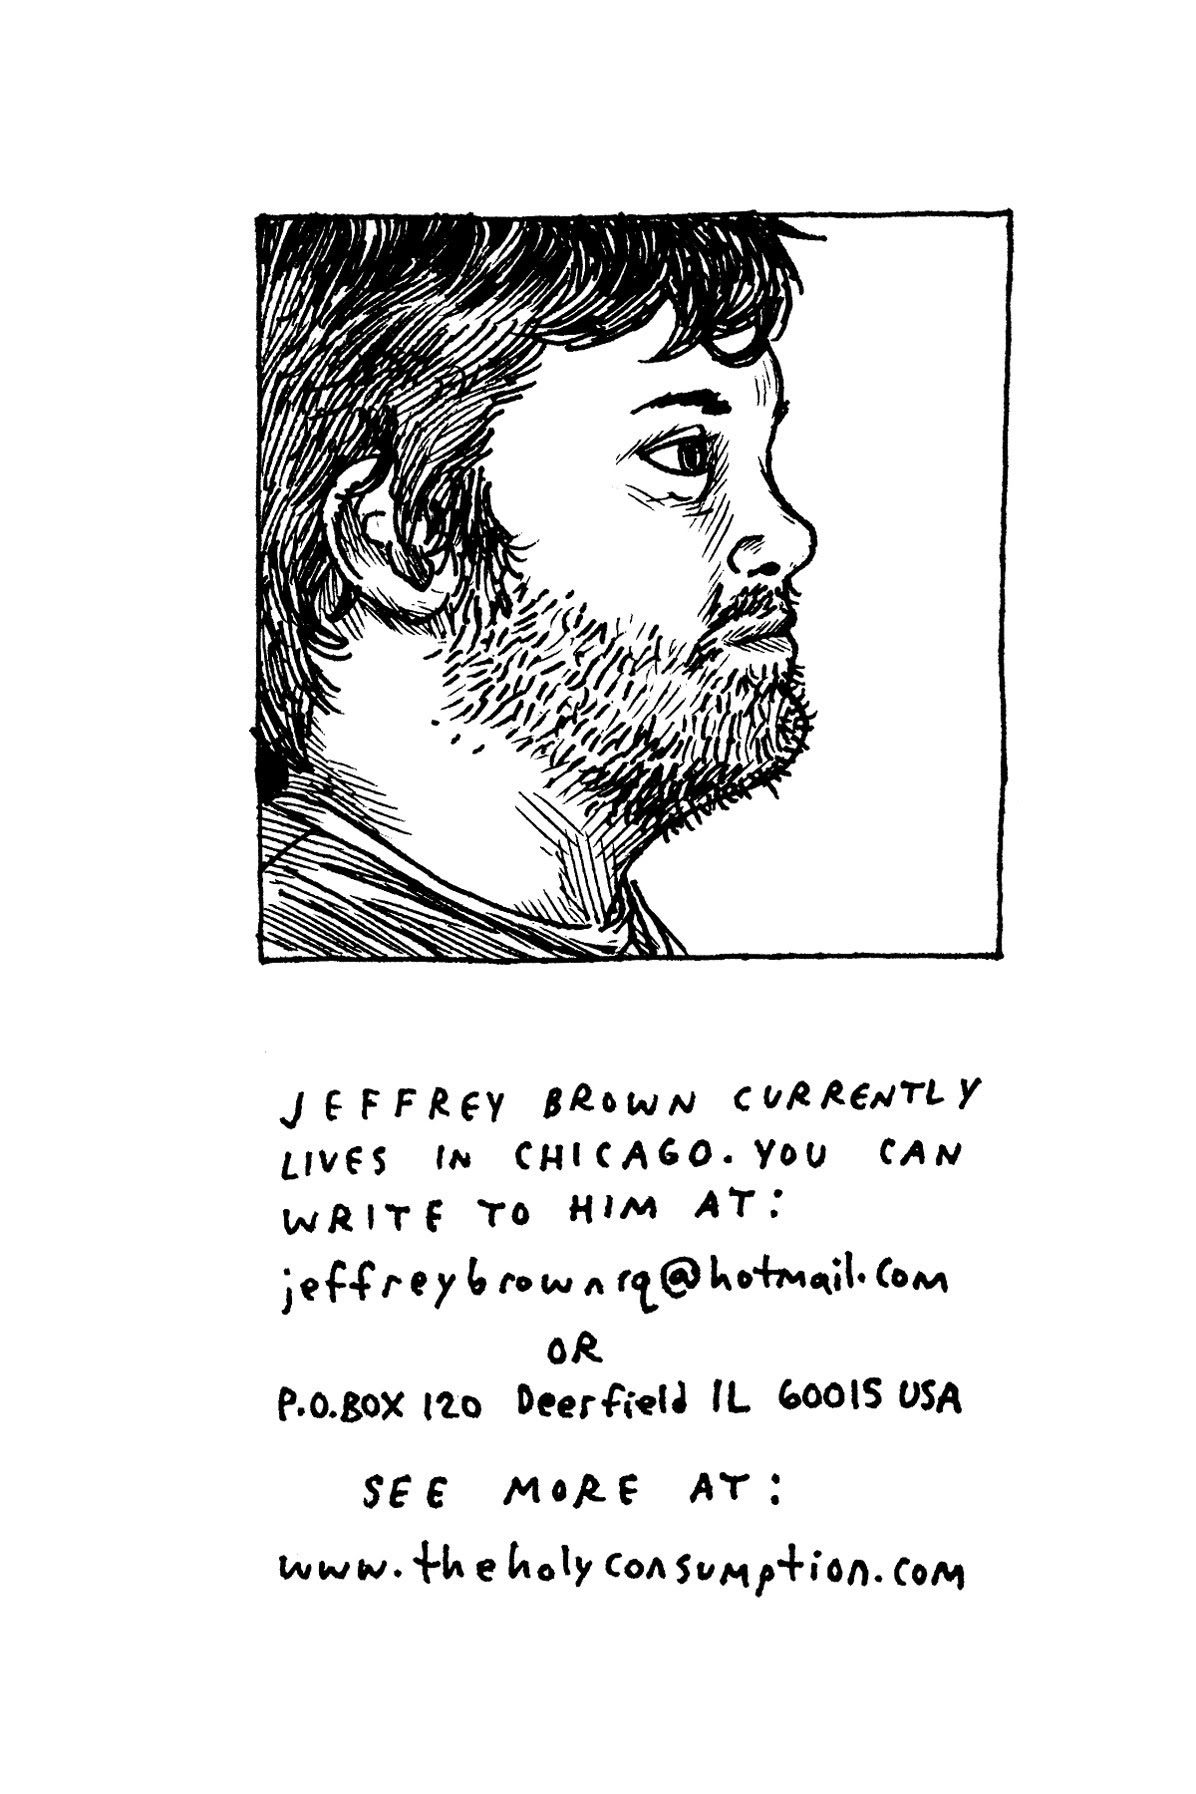 JEFFREY BROWN CURRENTLY
LIVES IN CHICAGO. YOU CAN
WRITE TO HIM AT:
jeffreybrownrq@hotmail.com
OR
P.O.BOX 120 Deerfield IL 60015 USA
SEE MORE AT:
www.theholyconsumption.com